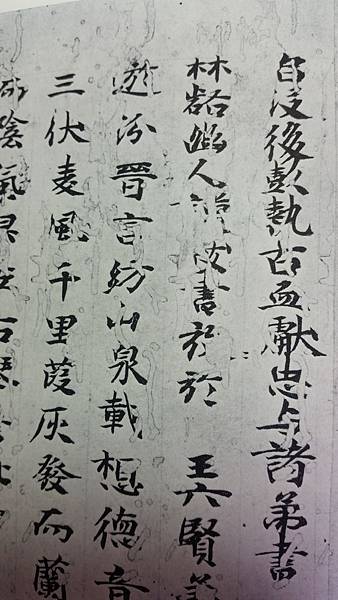 君没後彭執古孟獻忠与諸弟書
林壑幽人謹致書於於 王六賢
遊汾晉言訪山泉載想德音
三伏麦風千里葭灰發而蘭
陰氣